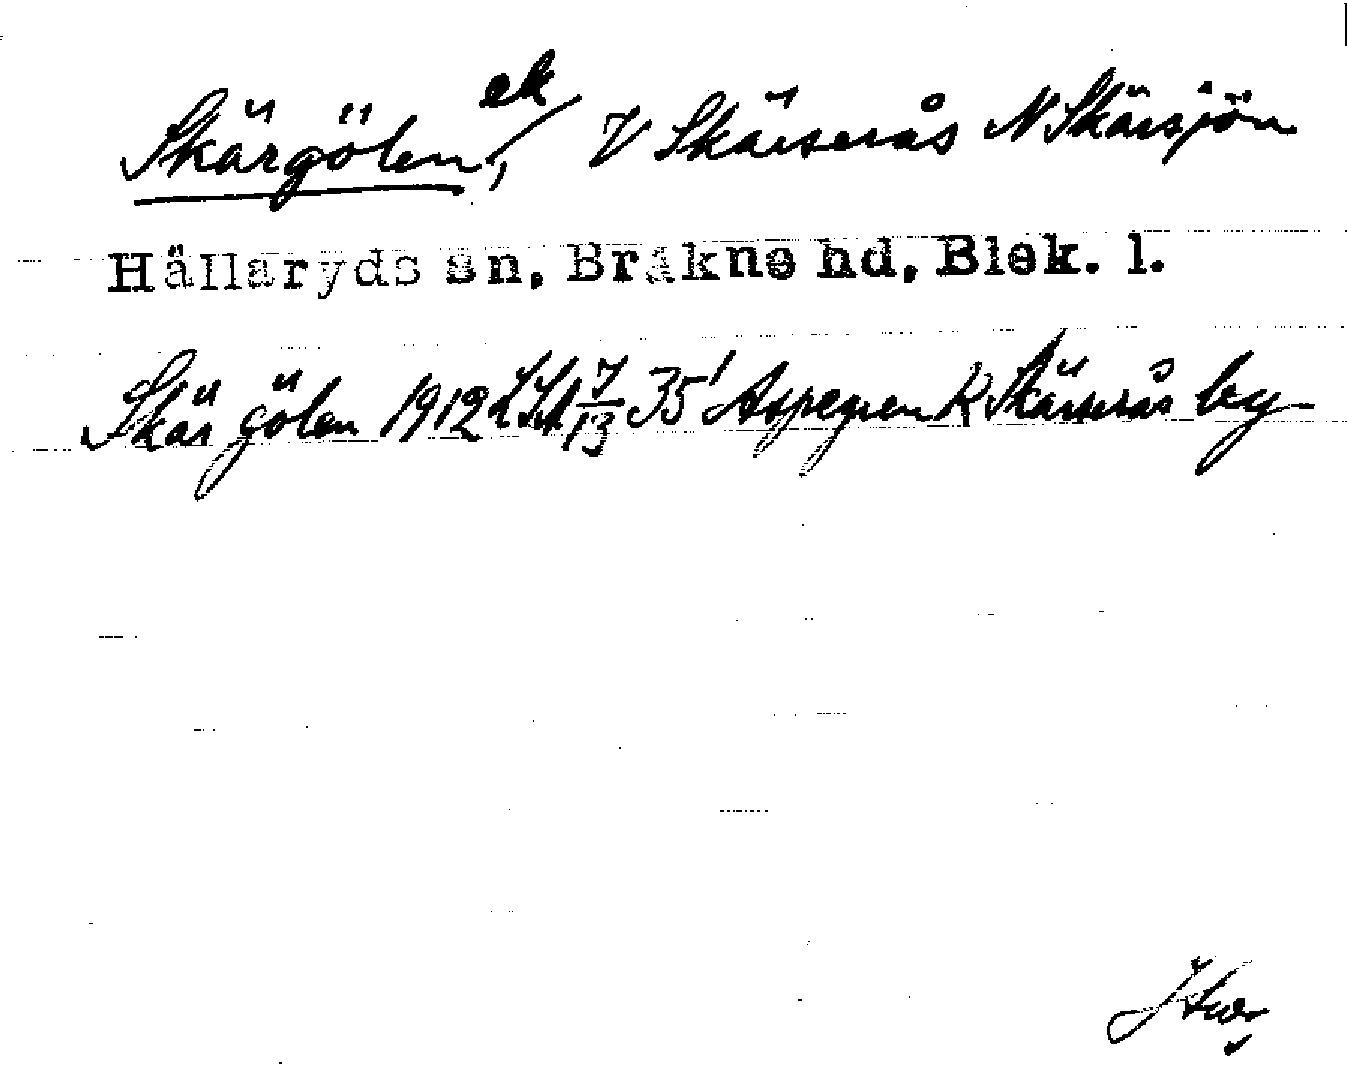 Skärgölen, ek V Skärserås N Skärsjön
Hällaryds sn, Bräkne hd, Blek. l.
Skär gölen 1912 LSA 7/13 35' Aspegren K Skärserås by